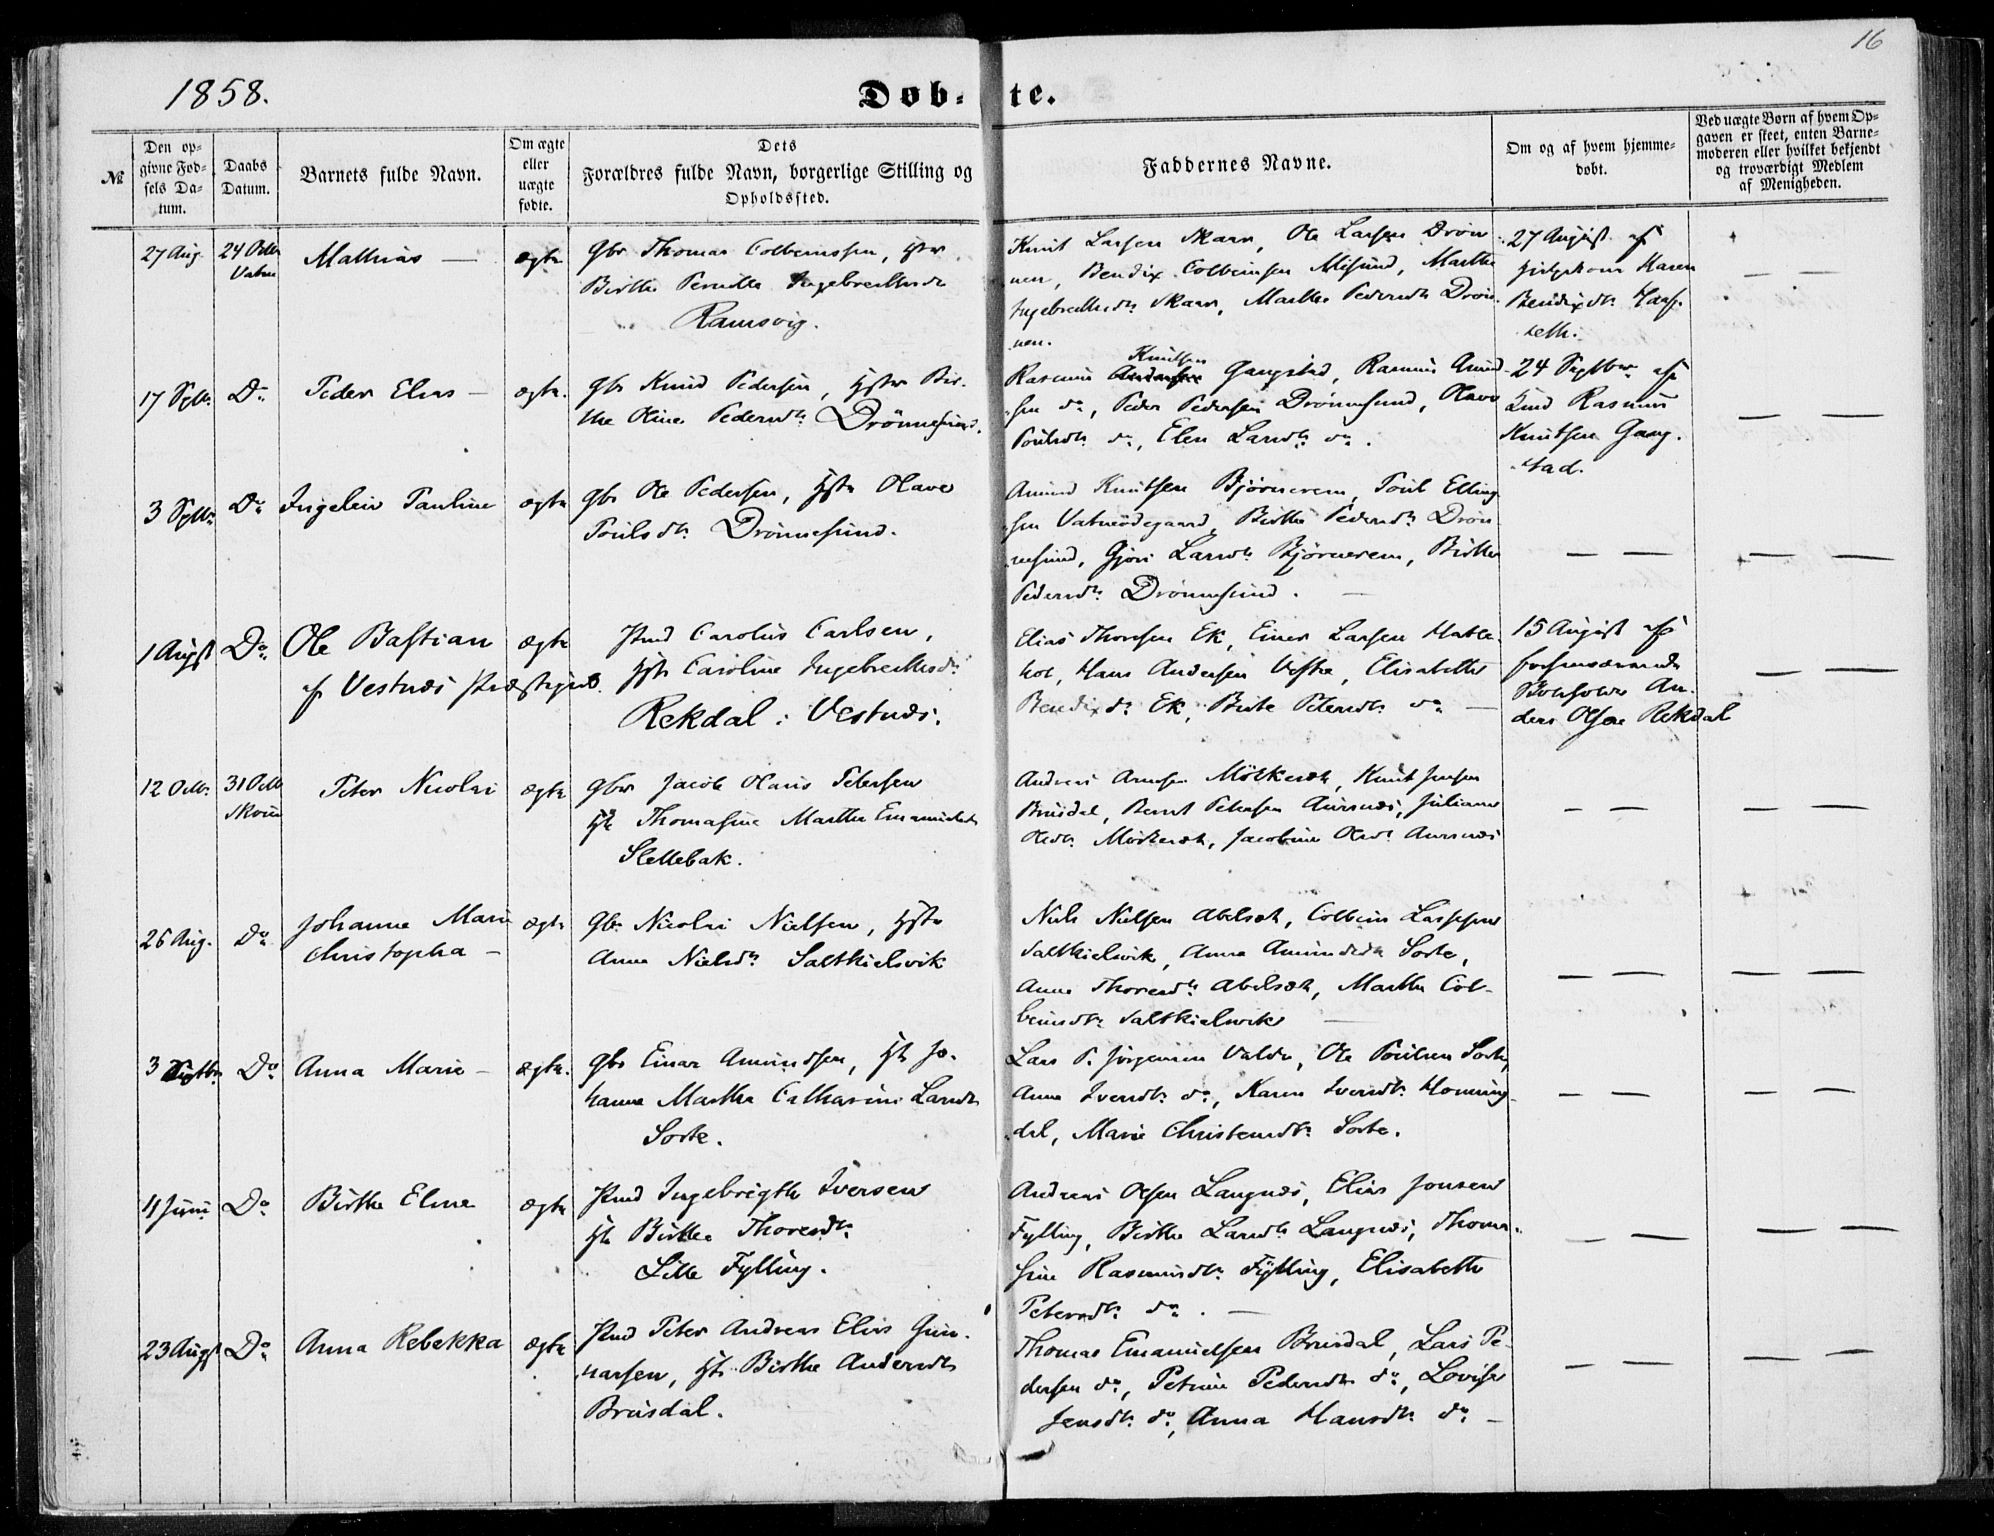 16
1858.
Døb- te.
№
Den op-
givne Fød-
sels Da-
tum.
Daabs
Datum.
Barnets fulde Navn.
Om ægte
eller
uægte
fødte.
Dets
Forældres fulde Navn, borgerlige Stilling og
Opholdssted.
Faddernes Navne.
Om og af hvem hjemme-
døbt.
Ved uægte Børn af hvem Op-
gaven er skeet, enten Barne-
moderen eller hvilket bekjendt
og troværdigt Medlem
af Menigheden.
27 Aug. 24 Octb. Mathias — ægte Gbr Thomas Colbeinssen, Hstr
Vatne
Birthe Pernille Ingebrethsdr
Ramsvig.
Knut Larsen Skaar, Ole Larsen Drön-
nen, Bendix Colbeinsen Misund, Marthe
Ingebrethsdr. Skaar, Marthe Pedersdr Drön-
nen.
27 August af
Karen
Bendixdr.
17 Sptbr. Do Peder Elias — ægte. Gbr Knud Pedersen, Hstr Bir-
the Oline Pedersdr. Drönnesund.
Knutsen
Rasmus Gangstad, Rasmus Amund-
sen do, Peder Pedersen Drönnesund, Olave
Poulsdr. do, Elen Larsdr. do.
24 Septbr. af
Rasmus
Knutsen Gang-
stad.
3 Sptbr. Do Ingeleiv Pauline ægte Gbr Ole Pedersen, Hstr Olave
Poulsdr. Drönnesund.
Amund Knutsen Bjørnerem, Poul Elling-
sen Vatneödegaard, Birthe Pedersdr. Drön-
nesund, Gjøri Larsdr. Bjørnerem, Birthe
Pedersdr. Drönnesund. —
1 August Do. Ole Bastian ægte Carolus Carlsen,
af Vestnæs Præstegjeld. Hstr Caroline Ingebrethsdr.
Rekdal i Vestnæs.
Elias Thorsen Ek, Einer Larsen
Hans Andersen Vestre, Elisabeth
Bendixdr. Ek, Birte Petersdr. do —
15 August af
forhenværende
An-
ders Olsen Rekdal
12 Octb. 31 Octb. Peter Nicolai ægte Gbr Jacob Olaus Petersen
Skoue
Hstr Thomasine Marthe Emanuelsdr
Slettebak.
Andreas Arnesen Mölkeræt, Knut Jensen
Brusdal, Bernt Petersen Aursnæs, Juliane
Olsdr. Jacobine Olsdr. Aursnæs
26 Aug. Do Johanne Marie ægte Gbr. Nicolai Nielsen, Hstr
Christopha —
Anne Nielsdr. Saltkielsvik
Niels Nielsen Abelsæt, Colbein Lassesen
Saltkielsvik, Anna Amundsdr. Sorte,
Anne Thoresdr. Abelsæt, Marthe Col-
beinsdr. Saltkielsvik —
3 Septbr. Do. Anna Marie — ægte. Gbr Einar Amundsen, Hstr Jo-
hanne Marthe Catharine Larsdr
Sorte.
Lars P. Jørgensen Valde, Ole Poulsen Sorte,
Anne Iversdr. do, Karen Iversdr. Honning-
dal, Marie Christensdr. Sorte.
11 Juni Do Birthe Eline ægte Ingebrigth Iversen
Hstr Birthe Thoresdr.
Lille Fylling.
Andreas Olsen Langnæs, Elias Jonsen
Fylling, Birthe Larsdr. Langnæs, Thoma-
sine Rasmusdr. Fylling, Elisabeth
Petersdr. do. —
23 Augst Do Anna Rebekka ægte Peter Andreas Elias Gun-
narsen, Hstr Birthe Andersdr.
Brusdal.
Thomas Emanuelsen Brusdal, Lars Pe-
dersen do, Petrine Pedersdr. do, Lovise
Jensdr. do, Anna Hansdr. do —